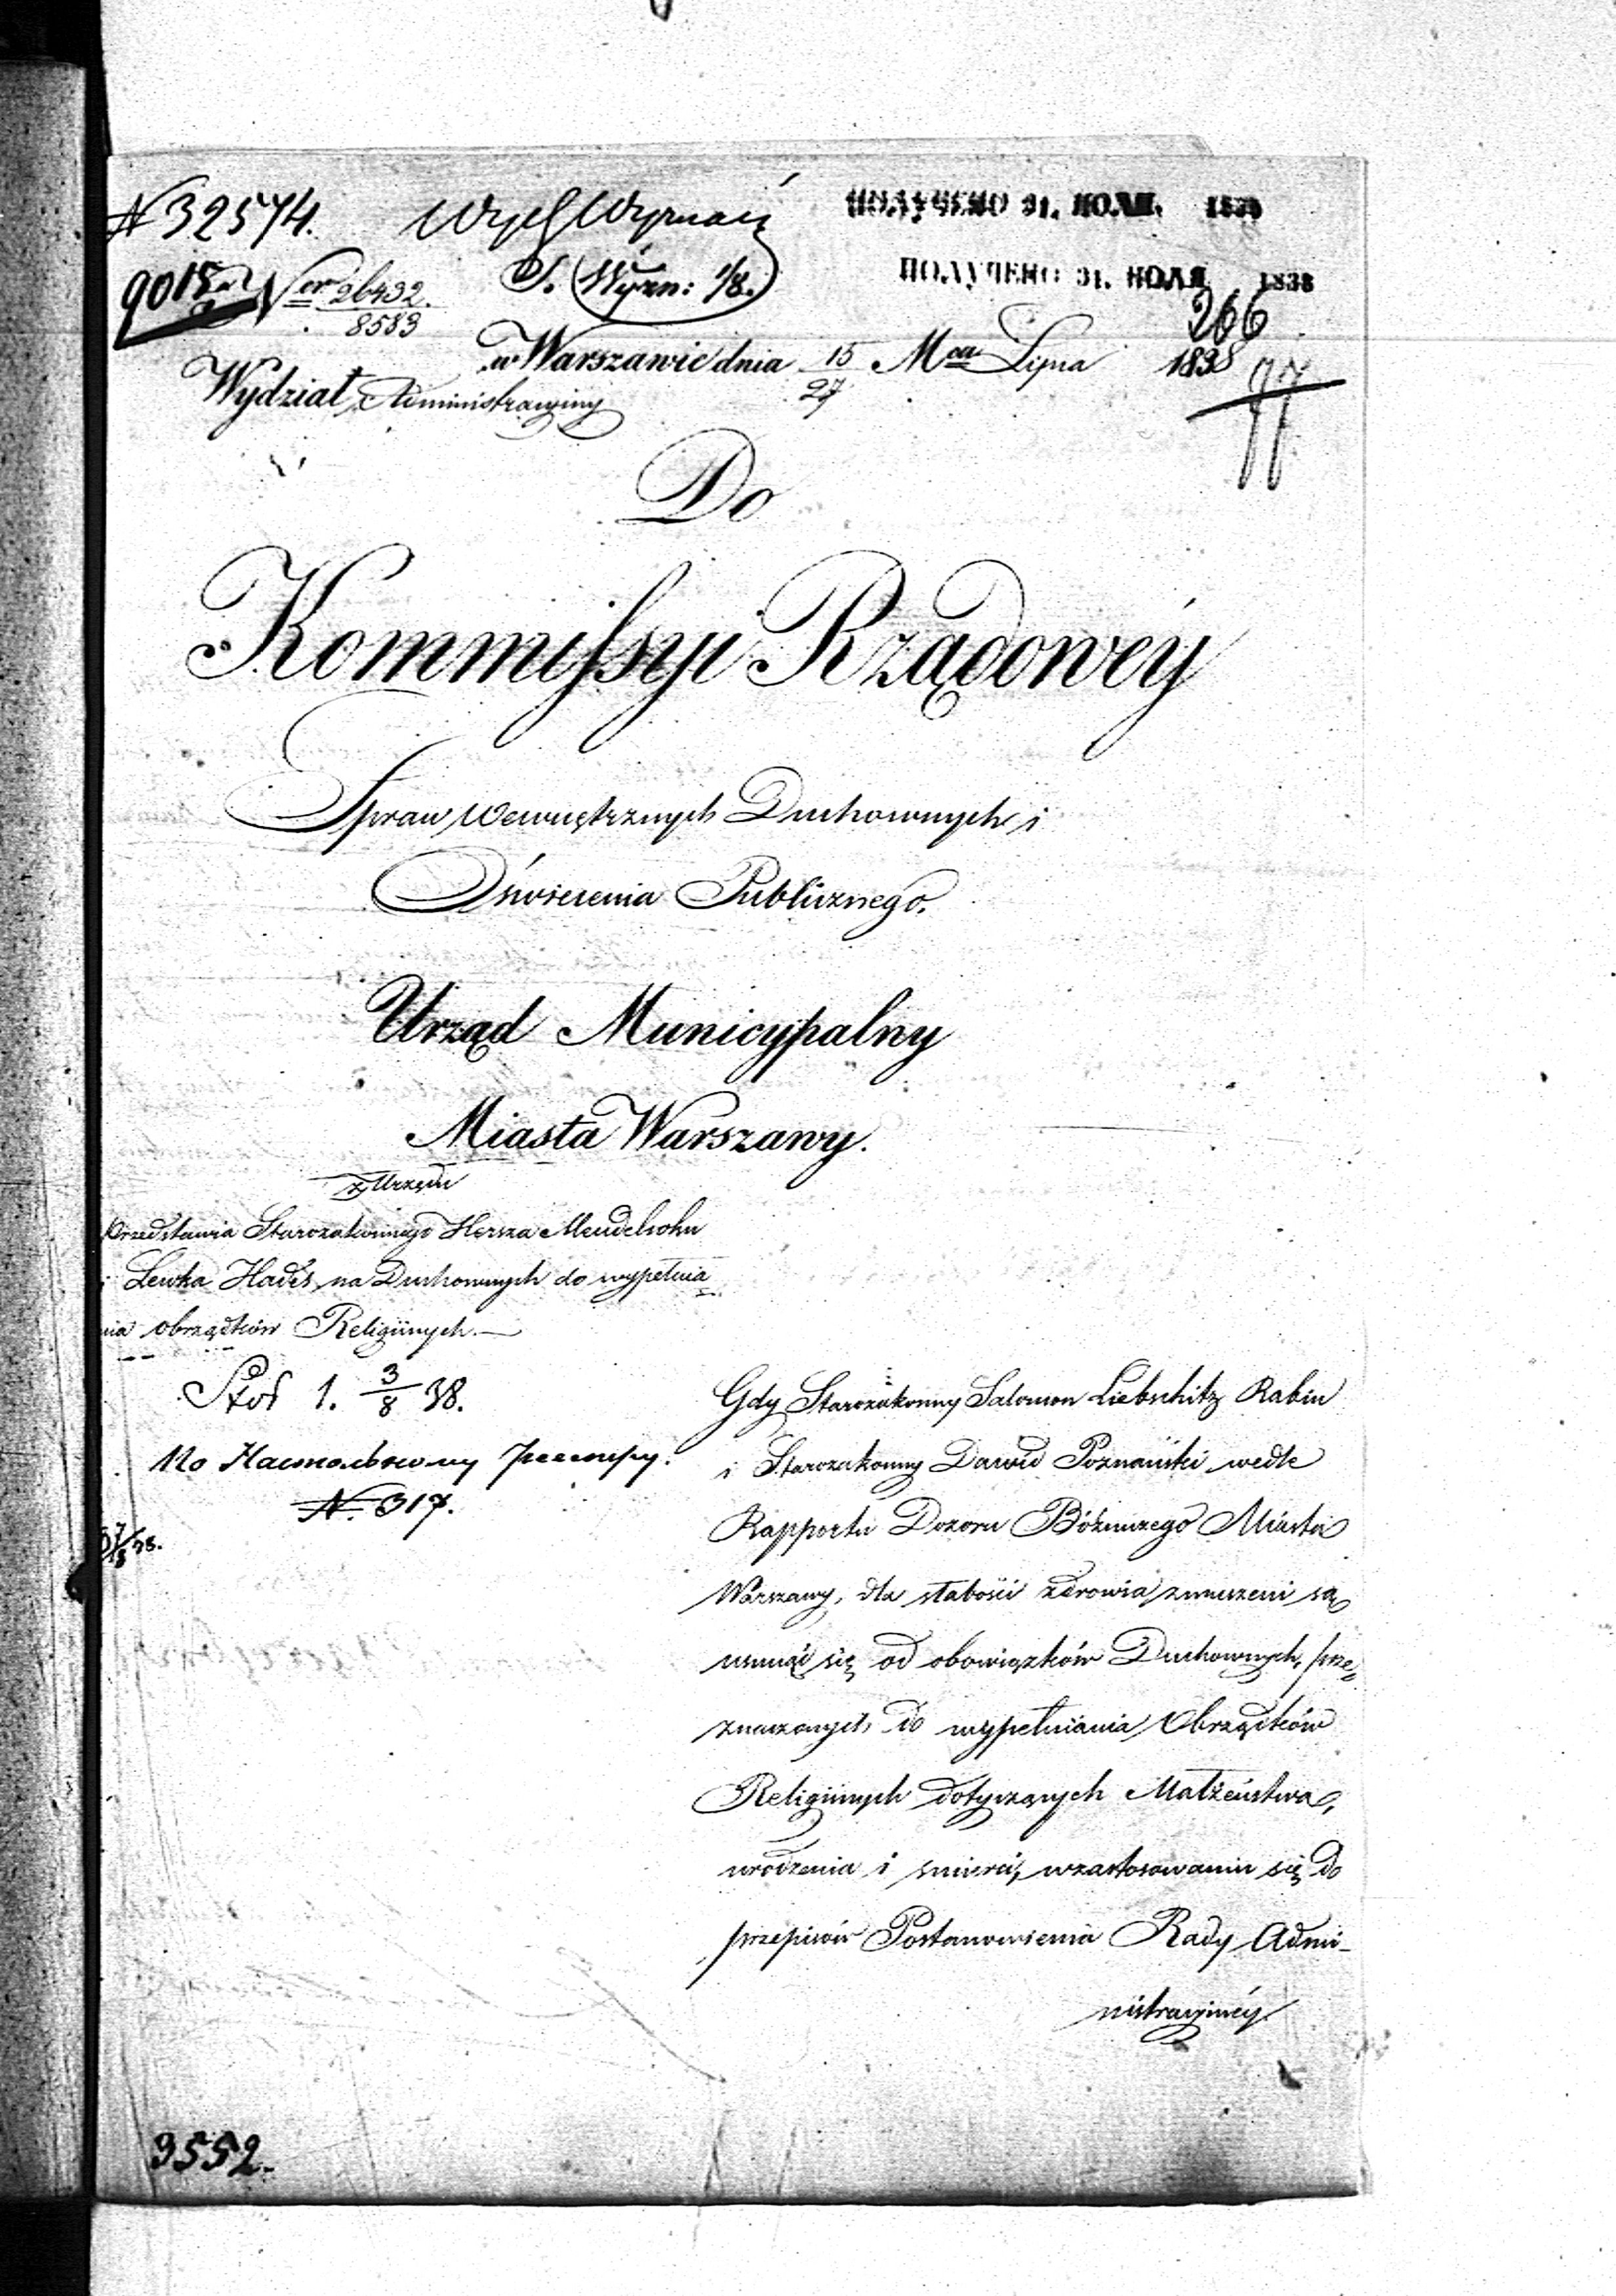 N 32574. Wych Wyznań ПОЛУЧЕНО 31. ІЮЛЯ. 1838
9015 Ner 26432. S. (Wyzn: 1/8.) ПОЛУЧЕНО 31. ІЮЛЯ 1838
8583 266
w Warszawie dnia 15/27 Mca Lipca 1838
Wydział Administracyiny
Do
Kommissyi Rządowéy
Spraw Wewnętrznych Duchownych i
Oświecenia Publicznego.
Urząd Municypalny
Miasta Warszawy.
z Urzędu
Przedstawia Starozakonnego Hersza Mendelsohn
i Lewka Hadis, na Duchownych do wypełnia
nia obrządków Religiinych.—
1. 3/8 38.
По Настольному реестру.
N. 317.
Gdy Starozakonny Salomon Liebschitz Rabin
i Starozakonny Dawid Poznański wedle
Rapportu Dozoru Bóżniczego Miasta
Warszawy, dla słabości zdrowia zmuszeni są
usunąć się od obowiązków Duchownych, prze=
znaczonych do wypełniania Obrządków
Religiinych dotyczących Małżeństwa,
urodzenia i śmierci, wzastosowaniu się do
przepisów Postanowienia Rady Admi-
nistracyinéy
3552.